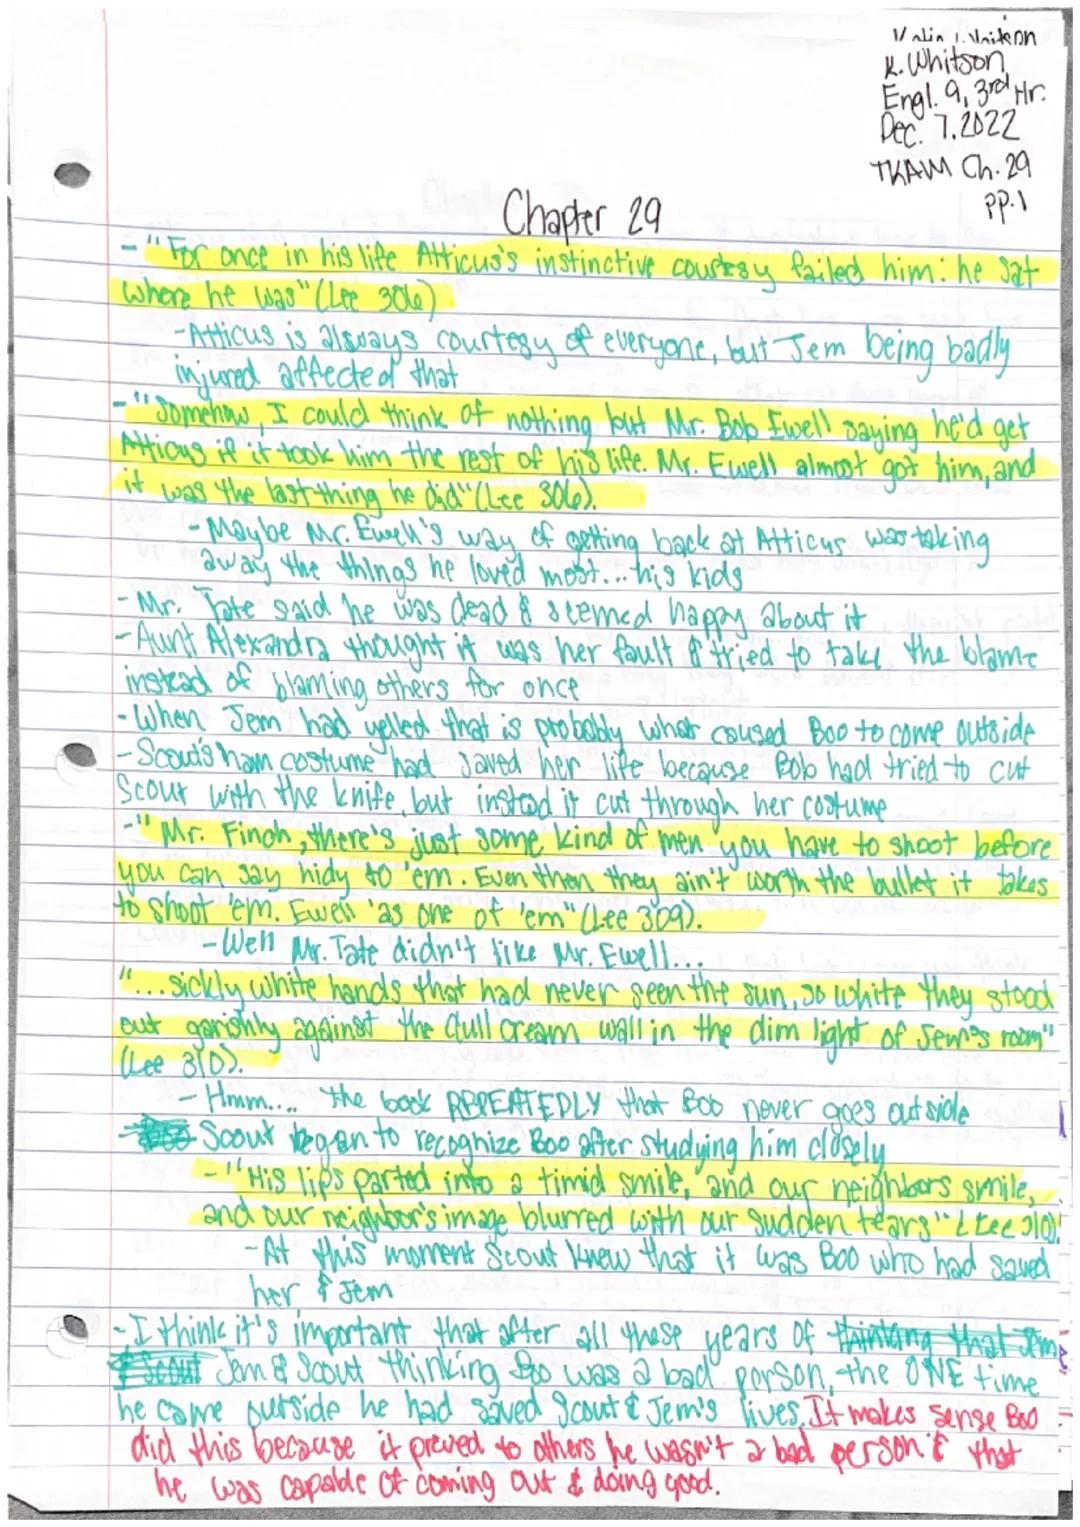 K. Whitson
Engl. 9, 3rd Hr.
Dec. 7, 2022
TKAM Ch. 29
pp. 1
Chapter 29
- "For once in his life Atticus's instinctive courtesy failed him: he sat
where he was" (Lee 306)
- Atticus is always courtesy of everyone, but Jem being badly
injured affected that
- "Somehow, I could think of nothing but Mr. Bob Ewell saying he'd get
Atticus if it took him the rest of his life. Mr. Ewell almost got him, and
it was the last thing he did" (Lee 306).
- Maybe Mr. Ewell's way of getting back at Atticus was taking
away the things he loved most... his kids
- Mr. Tate said he was dead & seemed happy about it
- Aunt Alexandra thought it was her fault & tried to take the blame
instead of blaming others for once
- When Jem had yelled, that is probably what caused Boo to come outside
- Scout's ham costume had saved her life because Bob had tried to cut
Scout with the knife, but instead it cut through her costume
- "Mr. Finch, there's just some kind of men you have to shoot before
you can say hidy to 'em. Even then they ain't worth the bullet it takes
to shoot 'em. Ewell 'as one of 'em" (Lee 309).
- Well Mr. Tate didn't like Mr. Ewell...
"...sickly white hands that had never seen the sun, so white they stood
out garishly against the dull cream wall in the dim light of Jem's room"
(Lee 310).
- Hmm.... the book REPEATEDLY that Boo never goes outside
- Scout began to recognize Boo after studying him closely
- "His lips parted into a timid smile, and our neighbors smile,
and our neighbor's image blurred with our sudden tears" (Lee 310).
- At this moment Scout knew that it was Boo who had saved
her & Jem
- I think it's important that after all these years of thinking that Jem
& Scout Jem & Scout thinking Boo was a bad person, the ONE time
he came outside he had saved Scout & Jem's lives. It makes sense Boo
did this because it proved to others he wasn't a bad person & that
he was capable of coming out & doing good.